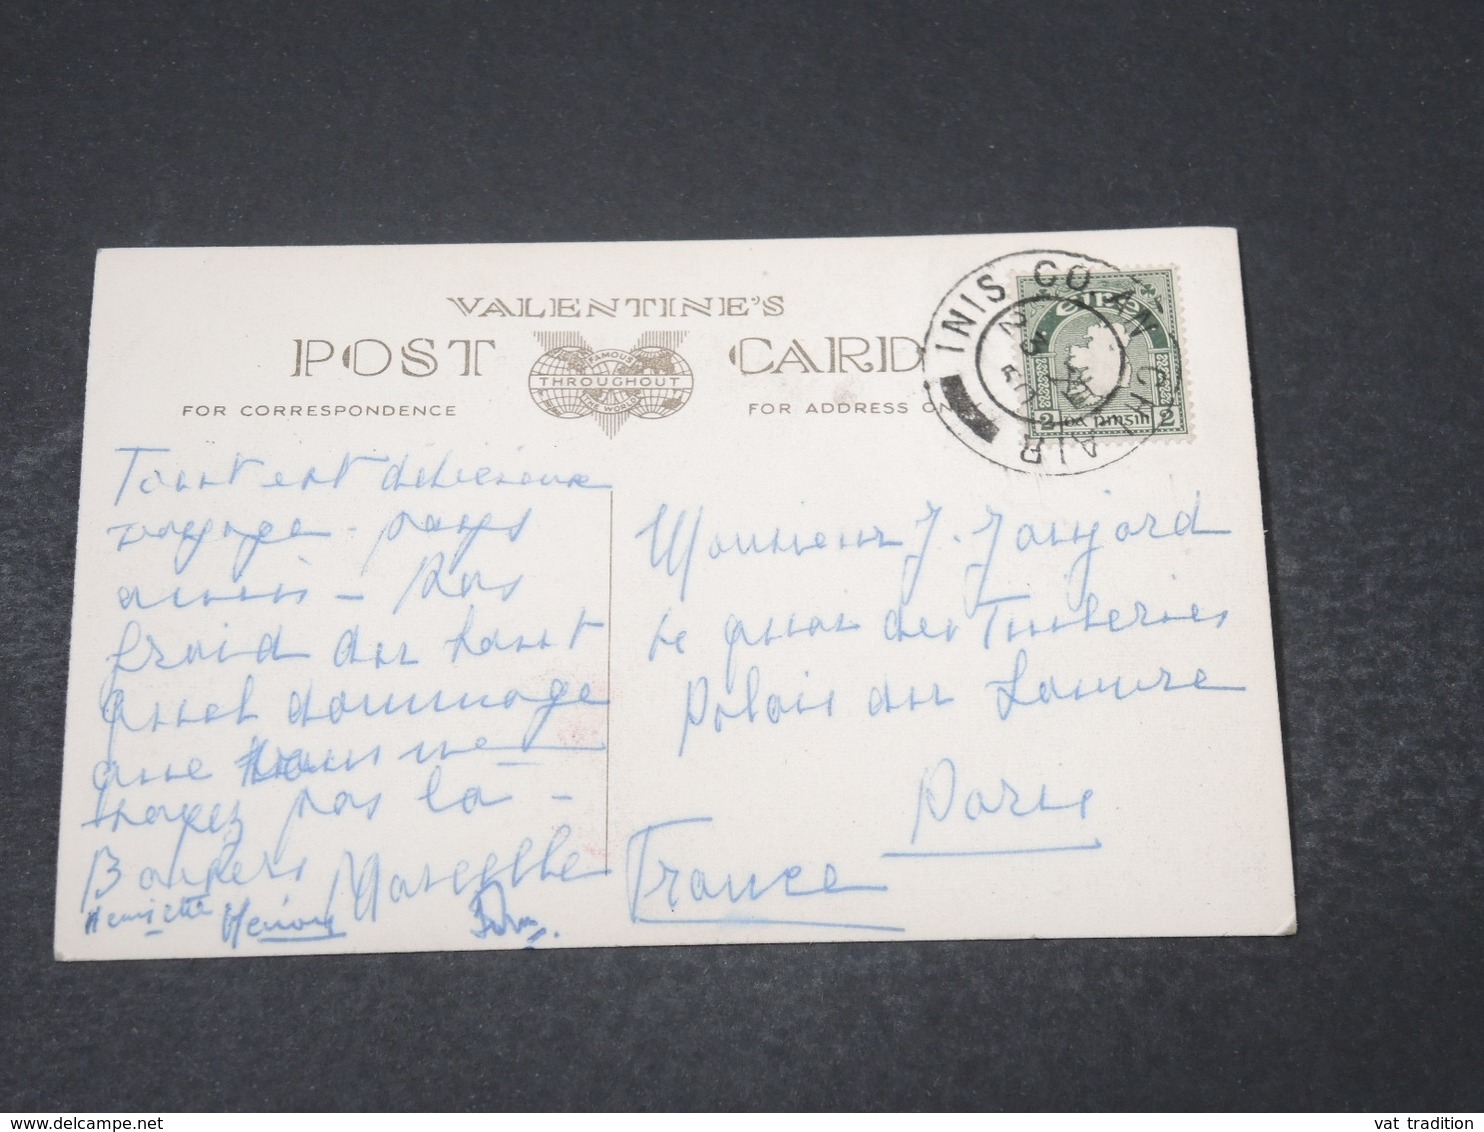 VALENTINE'S
POST CARD
FAMOUS
THROUGHOUT
THE WORLD
FOR CORRESPONDENCE
FOR ADDRESS ON
INIS CO AN CHLÁIR
éire
2 pingin 2
Tout est délicieux
voyage - pays
amis - Pas
froid du tout
quel dommage
que vous ne
soyez pas là -
Baisers Marcelle
Henriette
Monsieur J. Jaujard
quai des Tuileries
Palais du Louvre
Paris
France
vat tradition